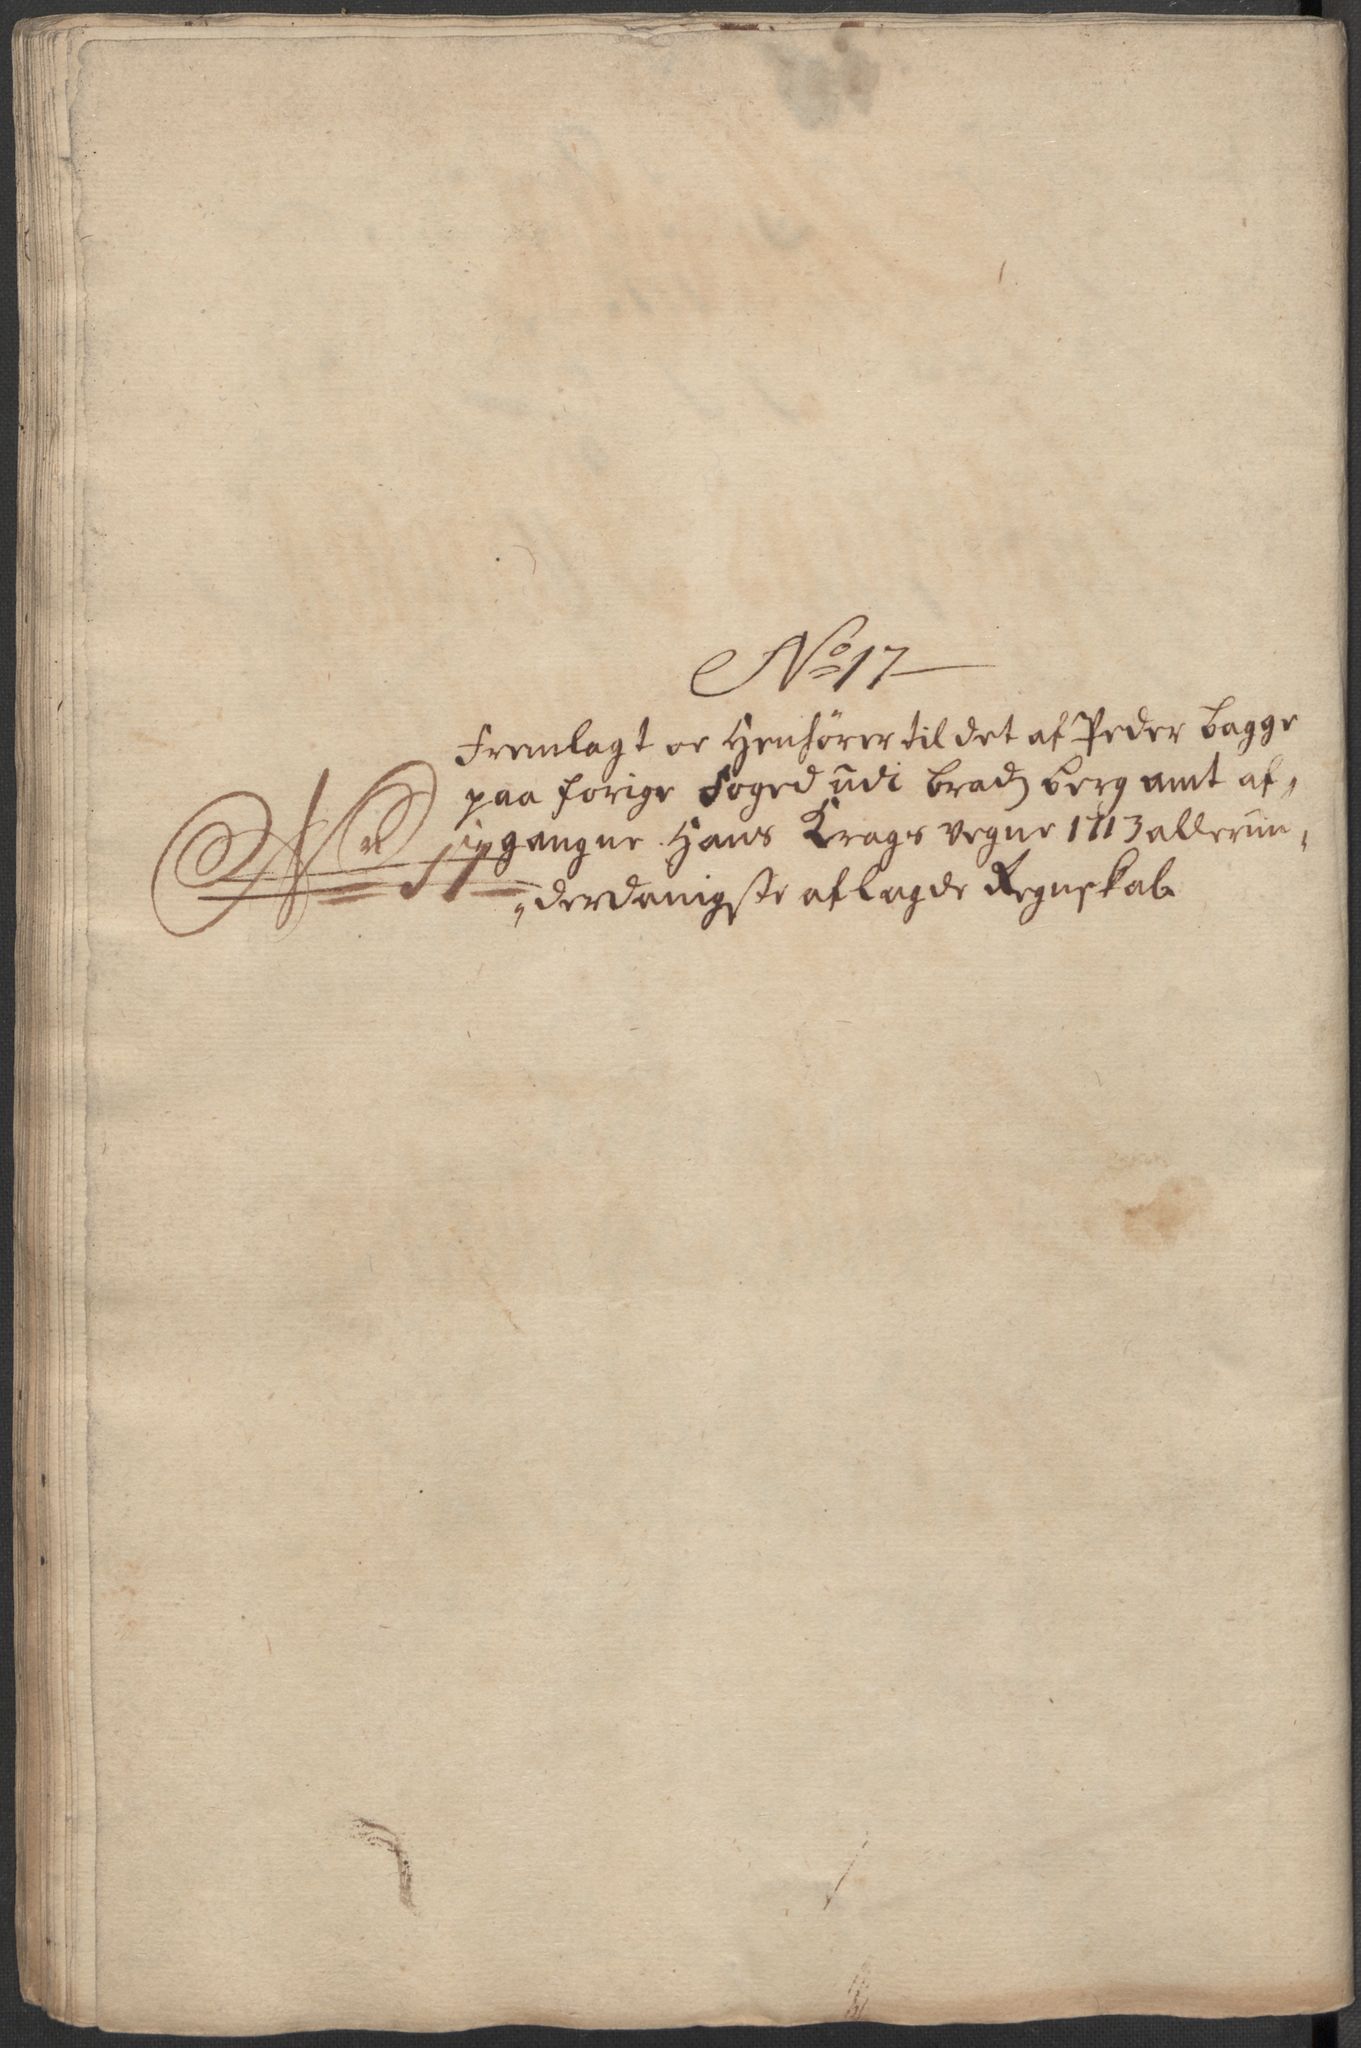 No 17
Fremlagt oc Henhörer til det af Peder Bagge
paa forige Foged udi Bradsberg amt af„
„gangne Hans Krags vegne 1713 allerun„
„derdanigste aflagde Regnskab
No 17